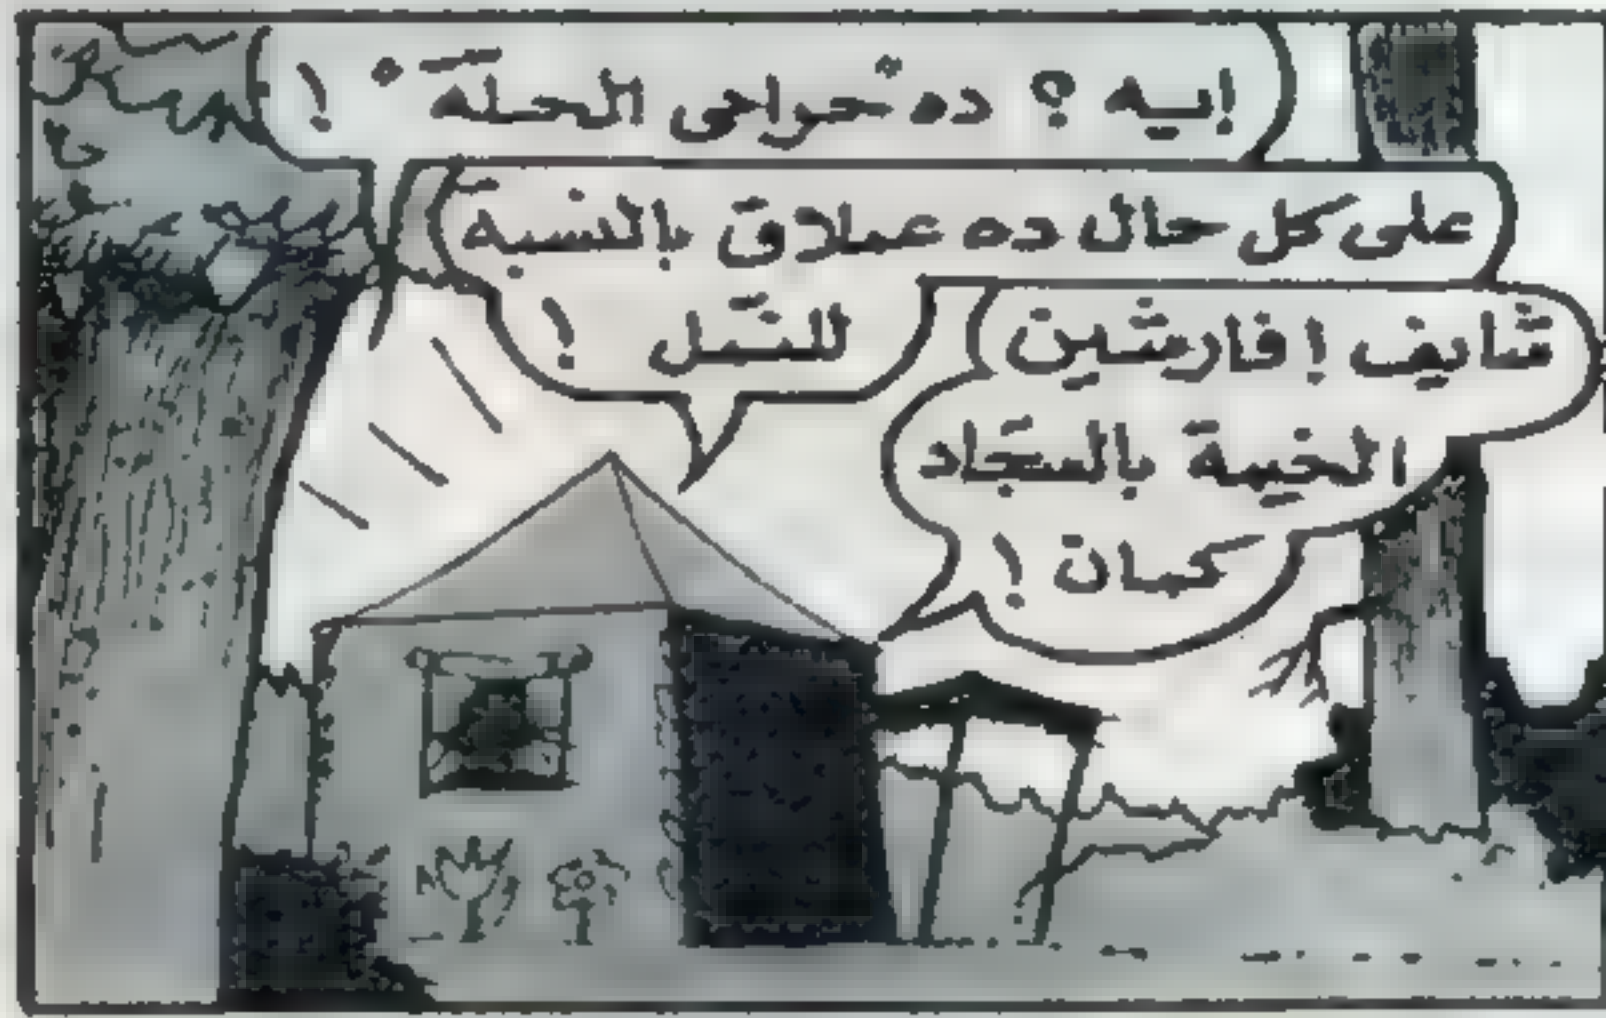 إيه ؟ ده حرامى الحلة ° !
على كل حال ده عملاق بالنسبة
للنمل !
شايف ! فارشين
الخيمة بالسجاد
كمان !